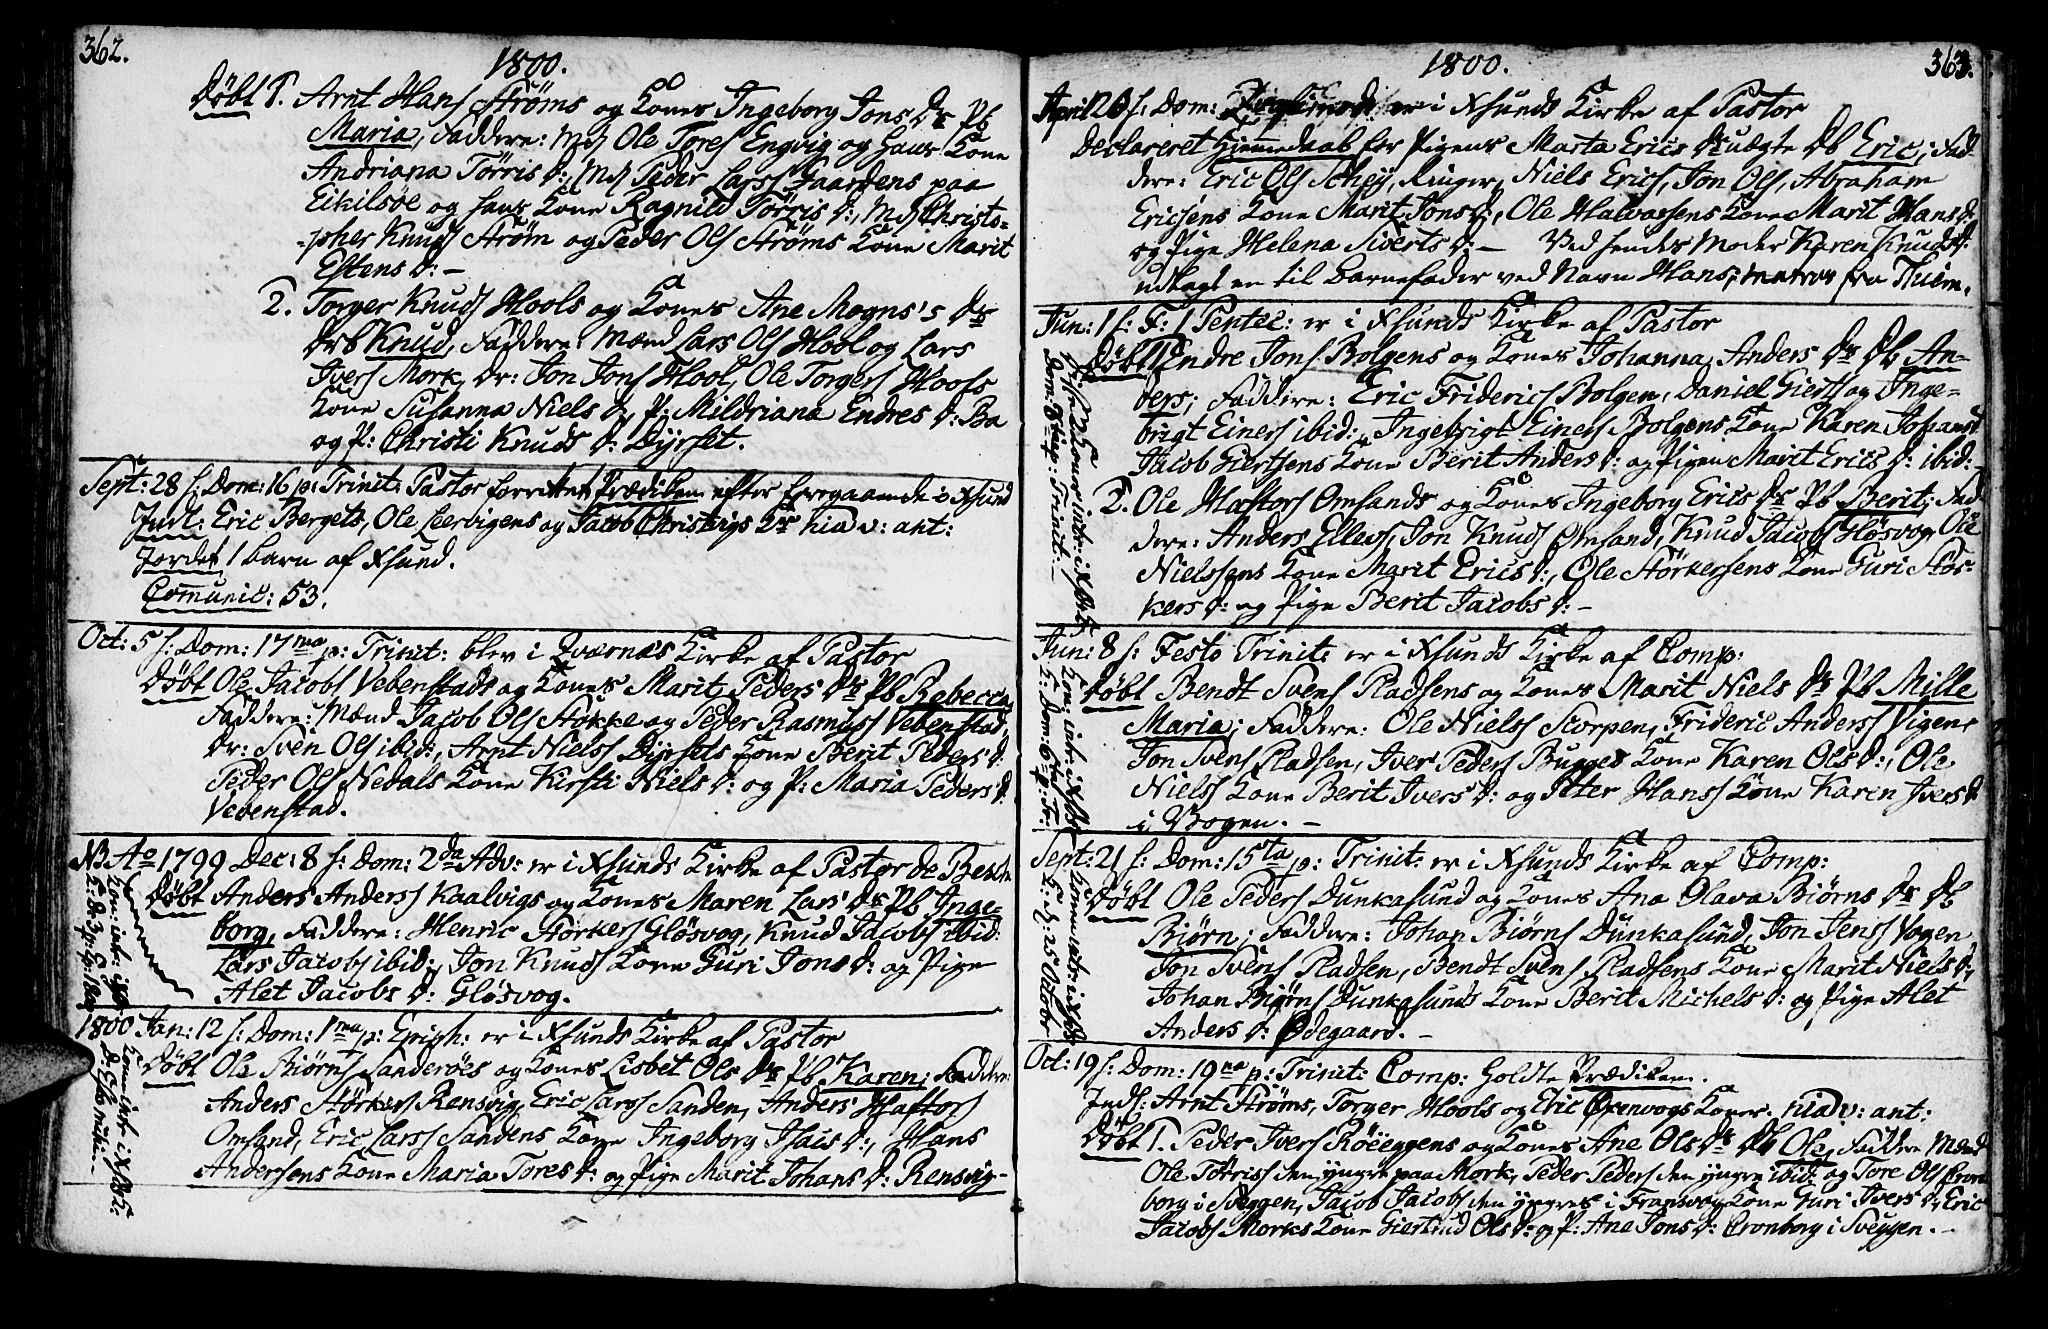 362.
1800.
Døbt 1. Arnt Hans Strøms og Kones Ingeborg Jons Dr Pb
Maria, Faddere: Md Ole Tores Engvig og Hans Kone
Andriana Tørris D:, Md Peder Larss Gaardens paa
Eikilsøe og hans Kone Ragnild Tørris D:, Md Christo-
-pher Knuds Strøm og Peder Ols Strøms Kone Marit
Estens D: —
2. Torger Knuds Hools og Kones Ane Mogns's Dr
Drb Knud, Faddere: Mænd Lars Ols Hool og Lars
Ivers Mork, Dr: Jon Jons Hool, Ole Torgers Hools
Kone Susanna Niels D:, P: Mildriana Endres D: Bø
og P: Christi Knuds D: Dyrset.
Sept: 28 s: Dom: 16 p: Trinit: Pastor forrettet Prædiken efter foregaaende i Xsund
Indl: Eric Bergets, Ole Leervigens og Jacob Christvigs 2r hia v: ant:
Jordet 1 barn af Xsund.
Comunic: 53.
Oct: 5 s: Dom: 17ma p: Trinit: blev i Qværnæs Kirke af Pastor
Døbt Ole Jacobs Vebenstads og Kones Marit Peders Dr Pb Rebecca,
Faddere: Mænd Jacob Ols Stokke og Peder Rasmuss Vebenstad
Dr: Sven Ols ibid:, Arnt Nielss Dyrsets Kone Berit Peders D:
Peder Ols Nedals Kone Kirsti Niels D: og P: Maria Peders D:
Vebenstad.
NB Ao 1799 Dec: 8 s: Dom: 2da Adv: er i Xsunds Kirke af Pastor de Besche
Døbt Anders Anderss Kaalvigs og Kones Maren Lars' Dr Pb Inge-
borg, Faddere: Henric Størkers Gløsvog, Knud Jacobs ibid:
Lars Jacobs ibid:, Jon Knuds Kone Guri Jons D: og Pige
Alet Jacobs D: Gløsvog.
1800 Jan: 12 s: Dom: 1ma p: Epiph: er i Xsunds Kirke af Pastor
Døbt Ole Biørns Sanderøes og Kones Lisbet Ols Dr Pb Karen; Faddere:
Anders Størkers Rensvig, Eric Larss Sanden, Anders Haftors
Omsund, Eric Larss Sandens Kone Ingeborg Isacs D:, Hans
Andersens Kone Maria Tores D: og Pige Marit Johans D: Rensvig —
1800.
363.
April 20 s: Dom: er i Xsunds Kirke af Pastor
Declareret Hiemmedaab for Pigens Marta Erics Dr uægte Db Eric; Fad-
dere: Eric Ols Schey, Ringer, Niels Erics, Jon Ols, Abraham
Ericsens Kone Marit Jons D:, Ole Halvorsens Kone Marit Hans D:
og Pige Helena Siverts D: — Ved hendes Moder Karen Knuds D:
udlagt er til Barnefader ved Navn Hans, matros fra Thiem.
Jun: 1 s: F: 1 Pentec: er i Xsunds Kirke af Pastor
Døbt 1 Endre Jons Bolgens og Kones Johanna Anders Dr Db An-
ders; Faddere: Eric Friderics Bolgen, Daniel Gierts og Inge-
brigt Einers ibid:, Ingebrigt Einers Bolgens Kone Karen Johans D
Jacob Giertsens Kone Berit Anders D: og Pigen Marit Erics D: ibid:
2. Ole Haftors Omsunds og Kones Ingeborg Erics Dr Pb Berit; Fad-
dere: Anders Ellevs, Jon Knuds Omsund, Knud Jacobs Gløsvog, Ole
Nielssens Kone Marit Erics D:, Ole Størkersens Kone Guri Stør-
kers D: og Pige Berit Jacobs D: —
Jun: 8 s: Festo Trinit: er i Xsunds Kirke af Comp:
Døbt Bendt Svens Pladsens og Kones Marit Niels Dr Pb Mille
Maria; Faddere: Ole Nielss Storpen, Frideric Anderss Vigen,
Jon Svens Pladsen, Iver Peders Bugges Kone Karen Ols D:, Ole
Nielss Kone Berit Ivers D: og Peter Hanss Kone Karen Ivers D
i Vogen. —
Sept: 21 s: Dom: 15ta p: Trinit: er i Xsunds Kirke af Comp:
Døbt Ole Peders Dunkasund og Kones Ana Olava Biørns Dr Db
Biørn; Faddere: Johan Biørns Dunkasund, Jon Jens Vogen
Jon Svens Pladsen, Bendt Svens Pladsens Kone Marit Niels D:,
Johan Biørns Dunkasunds Kone Berit Michels D: og Pige Alet
Anders D: Ødegaard. —
Oct: 19 s: Dom: 19na p: Trinit: Comp: Holdte Prædiken.
Indl: Arnt Strøms, Torger Hools og Eric Ørenvogs Kones. hia v: ant:
Døbt 1. Peder Ivers Røeeggens og Kones Ane Ols Dr Db Ole, Faddere Mænd
Ole Tørriss den yngre paa Mork, Peder Peders den yngre ibid: og Tore Ols Cron-
borg i Sveggen, Jacob Jacobs den yngres i Fransvog Kone Guri Ivers D: Eric
Jacobs Morks Kone Giertrud Ols D: og P: Ane Jons D: Cronborg i Sveggen. —